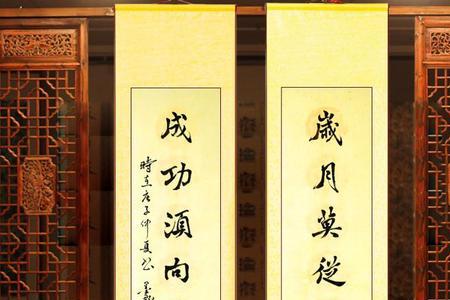 歲月莫從
成功須向
時在庚子仲夏